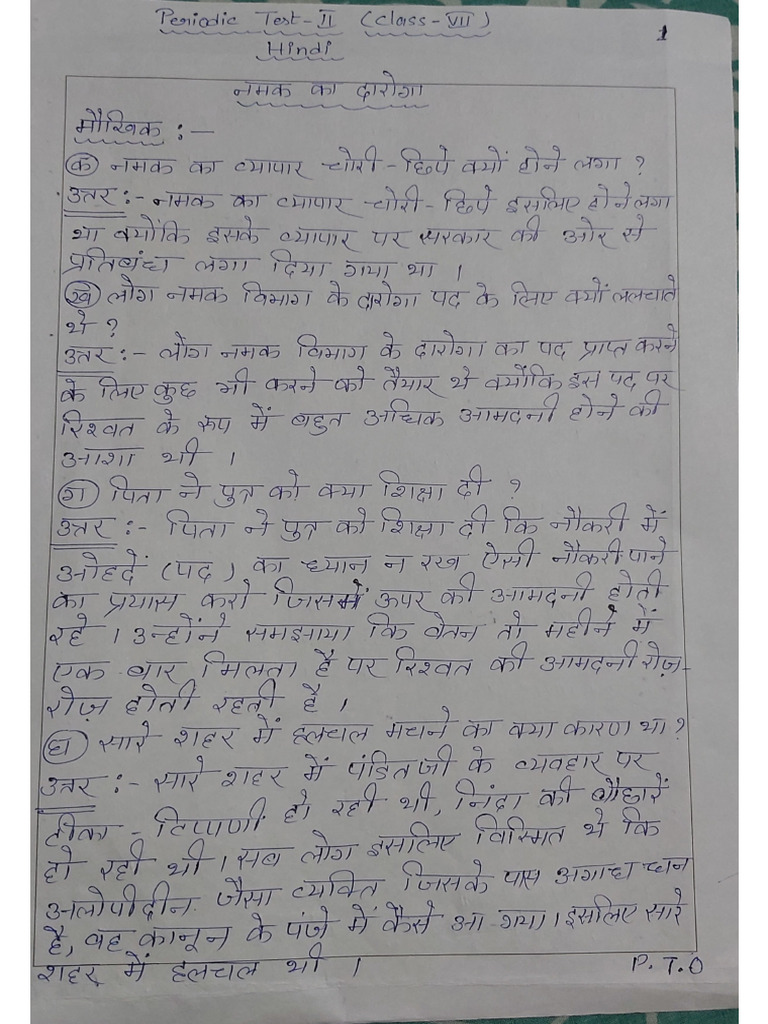 Periodic Test-II (Class-VII)
1
Hindi
नमक का दारोगा
मौखिक :-
(क) नमक का व्यापार चोरी-छिपे क्यों होने लगा ?
उत्तर :- नमक का व्यापार चोरी-छिपे इसलिए होने लगा
था क्योंकि इसके व्यापार पर सरकार की ओर से
प्रतिबंध लगा दिया गया था ।
(ख) लोग नमक विभाग के दारोगा पद के लिए क्यों ललचाते
थे ?
उत्तर :- लोग नमक विभाग के दारोगा का पद प्राप्त करने
के लिए कुछ भी करने को तैयार थे क्योंकि इस पद पर
रिश्वत के रूप में बहुत अधिक आमदनी होने की
आशा थी ।
(ग) पिता ने पुत्र को क्या शिक्षा दी ?
उत्तर :- पिता ने पुत्र को शिक्षा दी कि नौकरी में
ओहदें (पद) का ध्यान न रख ऐसी नौकरी पाने
का प्रयास करो जिसमें ऊपर की आमदनी होती
रहे । उन्होंने समझाया कि वेतन तो महीने में
एक बार मिलता है पर रिश्वत की आमदनी रोज़-
रोज़ होती रहती है ।
(घ) सारे शहर में हलचल मचने का क्या कारण था ?
उत्तर :- सारे शहर में पंडितजी के व्यवहार पर
टीका-टिप्पणी हो रही थी, निंदा की बौछारें
हो रही थी । सब लोग इसलिए विस्मित थे कि
अलोपीदीन जैसा व्यक्ति जिसके पास अगाध धन
है, वह कानून के पंजे में कैसे आ गया । इसलिए सारे
शहर में हलचल थी ।
P.T.O